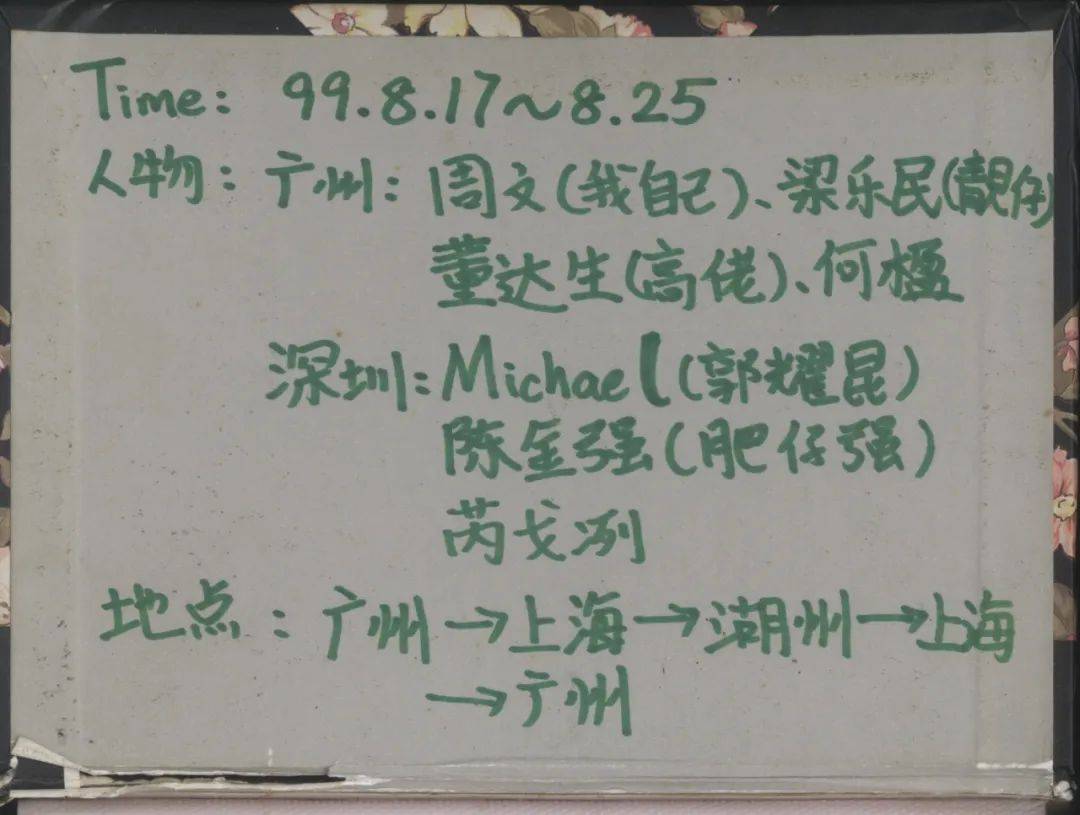 Time: 99.8.17~8.25
人物: 广州: 周文(我自己)、梁乐民(靓仔)
董达生(高佬)、何楹
深圳: Michael(郭耀昆)
陈金强(肥仔强)
芮戈冽
地点: 广州→上海→湖州→上海
→广州